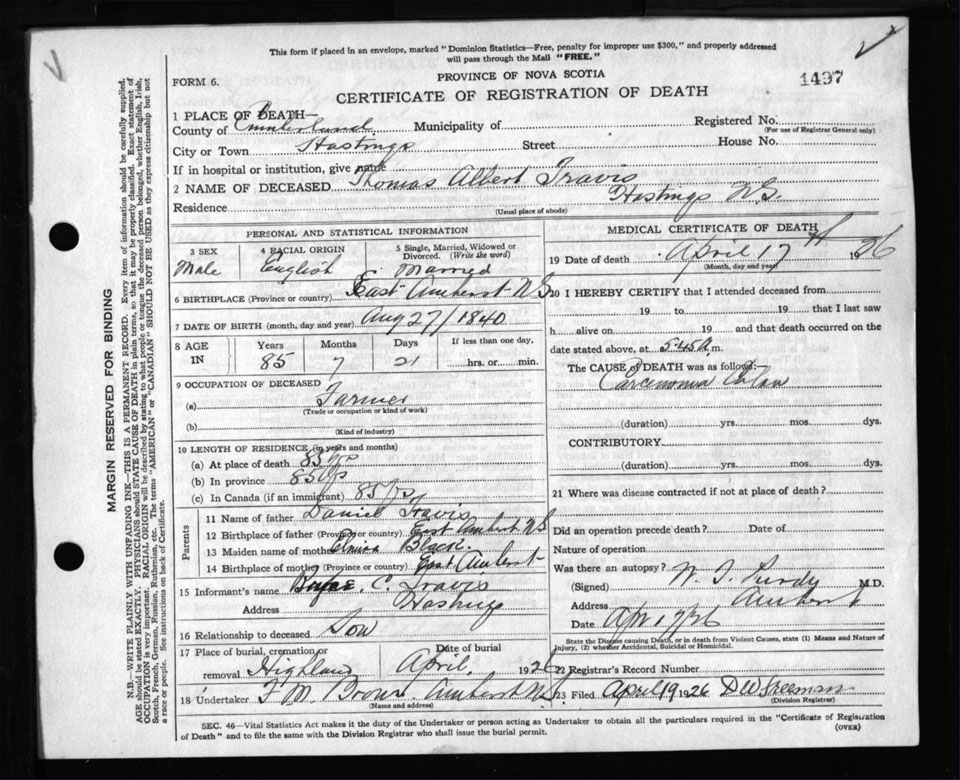 This form if placed in an envelope, marked "Dominion Statistics—Free, penalty for improper use $300," and properly addressed
will pass through the Mail "FREE."
FORM 6.
PROVINCE OF NOVA SCOTIA
1497
CERTIFICATE OF REGISTRATION OF DEATH
1 PLACE OF DEATH—
County of Cumberland Municipality of Registered No.
(For use of Registrar General only)
City or Town Hastings Street House No.
If in hospital or institution, give name
2 NAME OF DECEASED Thomas Albert Travis
Residence Hastings N.S.
(Usual place of abode)
PERSONAL AND STATISTICAL INFORMATION
3 SEX 4 RACIAL ORIGIN 5 Single, Married, Widowed or
Divorced. (Write the word)
Male English Married
6 BIRTHPLACE (Province or country) East Amherst N.S.
7 DATE OF BIRTH (month, day and year) Aug 27/1840
8 AGE IN Years Months Days If less than one day,
85 7 21 hrs. or min.
9 OCCUPATION OF DECEASED
(a) Farmer
(Trade or occupation or kind of work)
(b)
(Kind of industry)
10 LENGTH OF RESIDENCE (in years and months)
(a) At place of death 85 yrs
(b) In province 85 yrs
(c) In Canada (if an immigrant) 85 yrs
Parents
11 Name of father Daniel Travis
12 Birthplace of father (Province or country) East Amherst N.S
13 Maiden name of mother
14 Birthplace of mother (Province or country) East Amherst
15 Informant's name C. Travis
Address Hastings
16 Relationship to deceased Son
17 Place of burial, cremation or Date of burial
removal Highland April, 1926
18 Undertaker F M Brown Amherst N.S.
(Name and address)
MEDICAL CERTIFICATE OF DEATH
19 Date of death April 17th 1926
(Month, day and year)
20 I HEREBY CERTIFY that I attended deceased from
19 to 19 that I last saw
h alive on 19 and that death occurred on
date stated above, at 5.45 A.m.
The CAUSE of DEATH was as follows:
Carcenomia Colon
(duration) yrs. mos. dys.
CONTRIBUTORY
(duration) yrs. mos. dys.
21 Where was disease contracted if not at place of death?
Did an operation precede death? Date of
Nature of operation
Was there an autopsy?
(Signed) W. T. Purdy M.D.
Address Amherst
Date Apr 17/26
State the Disease causing Death, or in death from Violent Causes, state (1) Means and Nature of
Injury, (2) whether Accidental, Suicidal or Homicidal.
22 Registrar's Record Number
23 Filed April 19 1926 D W Freeman
(Division Registrar)
SEC. 46—Vital Statistics Act makes it the duty of the Undertaker or person acting as Undertaker to obtain all the particulars required in the "Certificate of Registration
of Death" and to file the same with the Division Registrar who shall issue the burial permit.
(OVER)
MARGIN RESERVED FOR BINDING
N.B.—WRITE PLAINLY WITH UNFADING INK—THIS IS A PERMANENT RECORD. Every item of information should be carefully supplied.
AGE should be stated EXACTLY. PHYSICIANS should STATE CAUSE OF DEATH in plain terms, so that it may be properly classified. Exact statement of
OCCUPATION is very important. RACIAL ORIGIN will be described by stating to what people or tongue the deceased person belonged, whether English, Irish,
Scotch, French, German, Russian, Ruthenian, etc. The terms "AMERICAN" or "CANADIAN" SHOULD NOT BE USED as they express citizenship but not
a race or people. See instructions on back of Certificate.